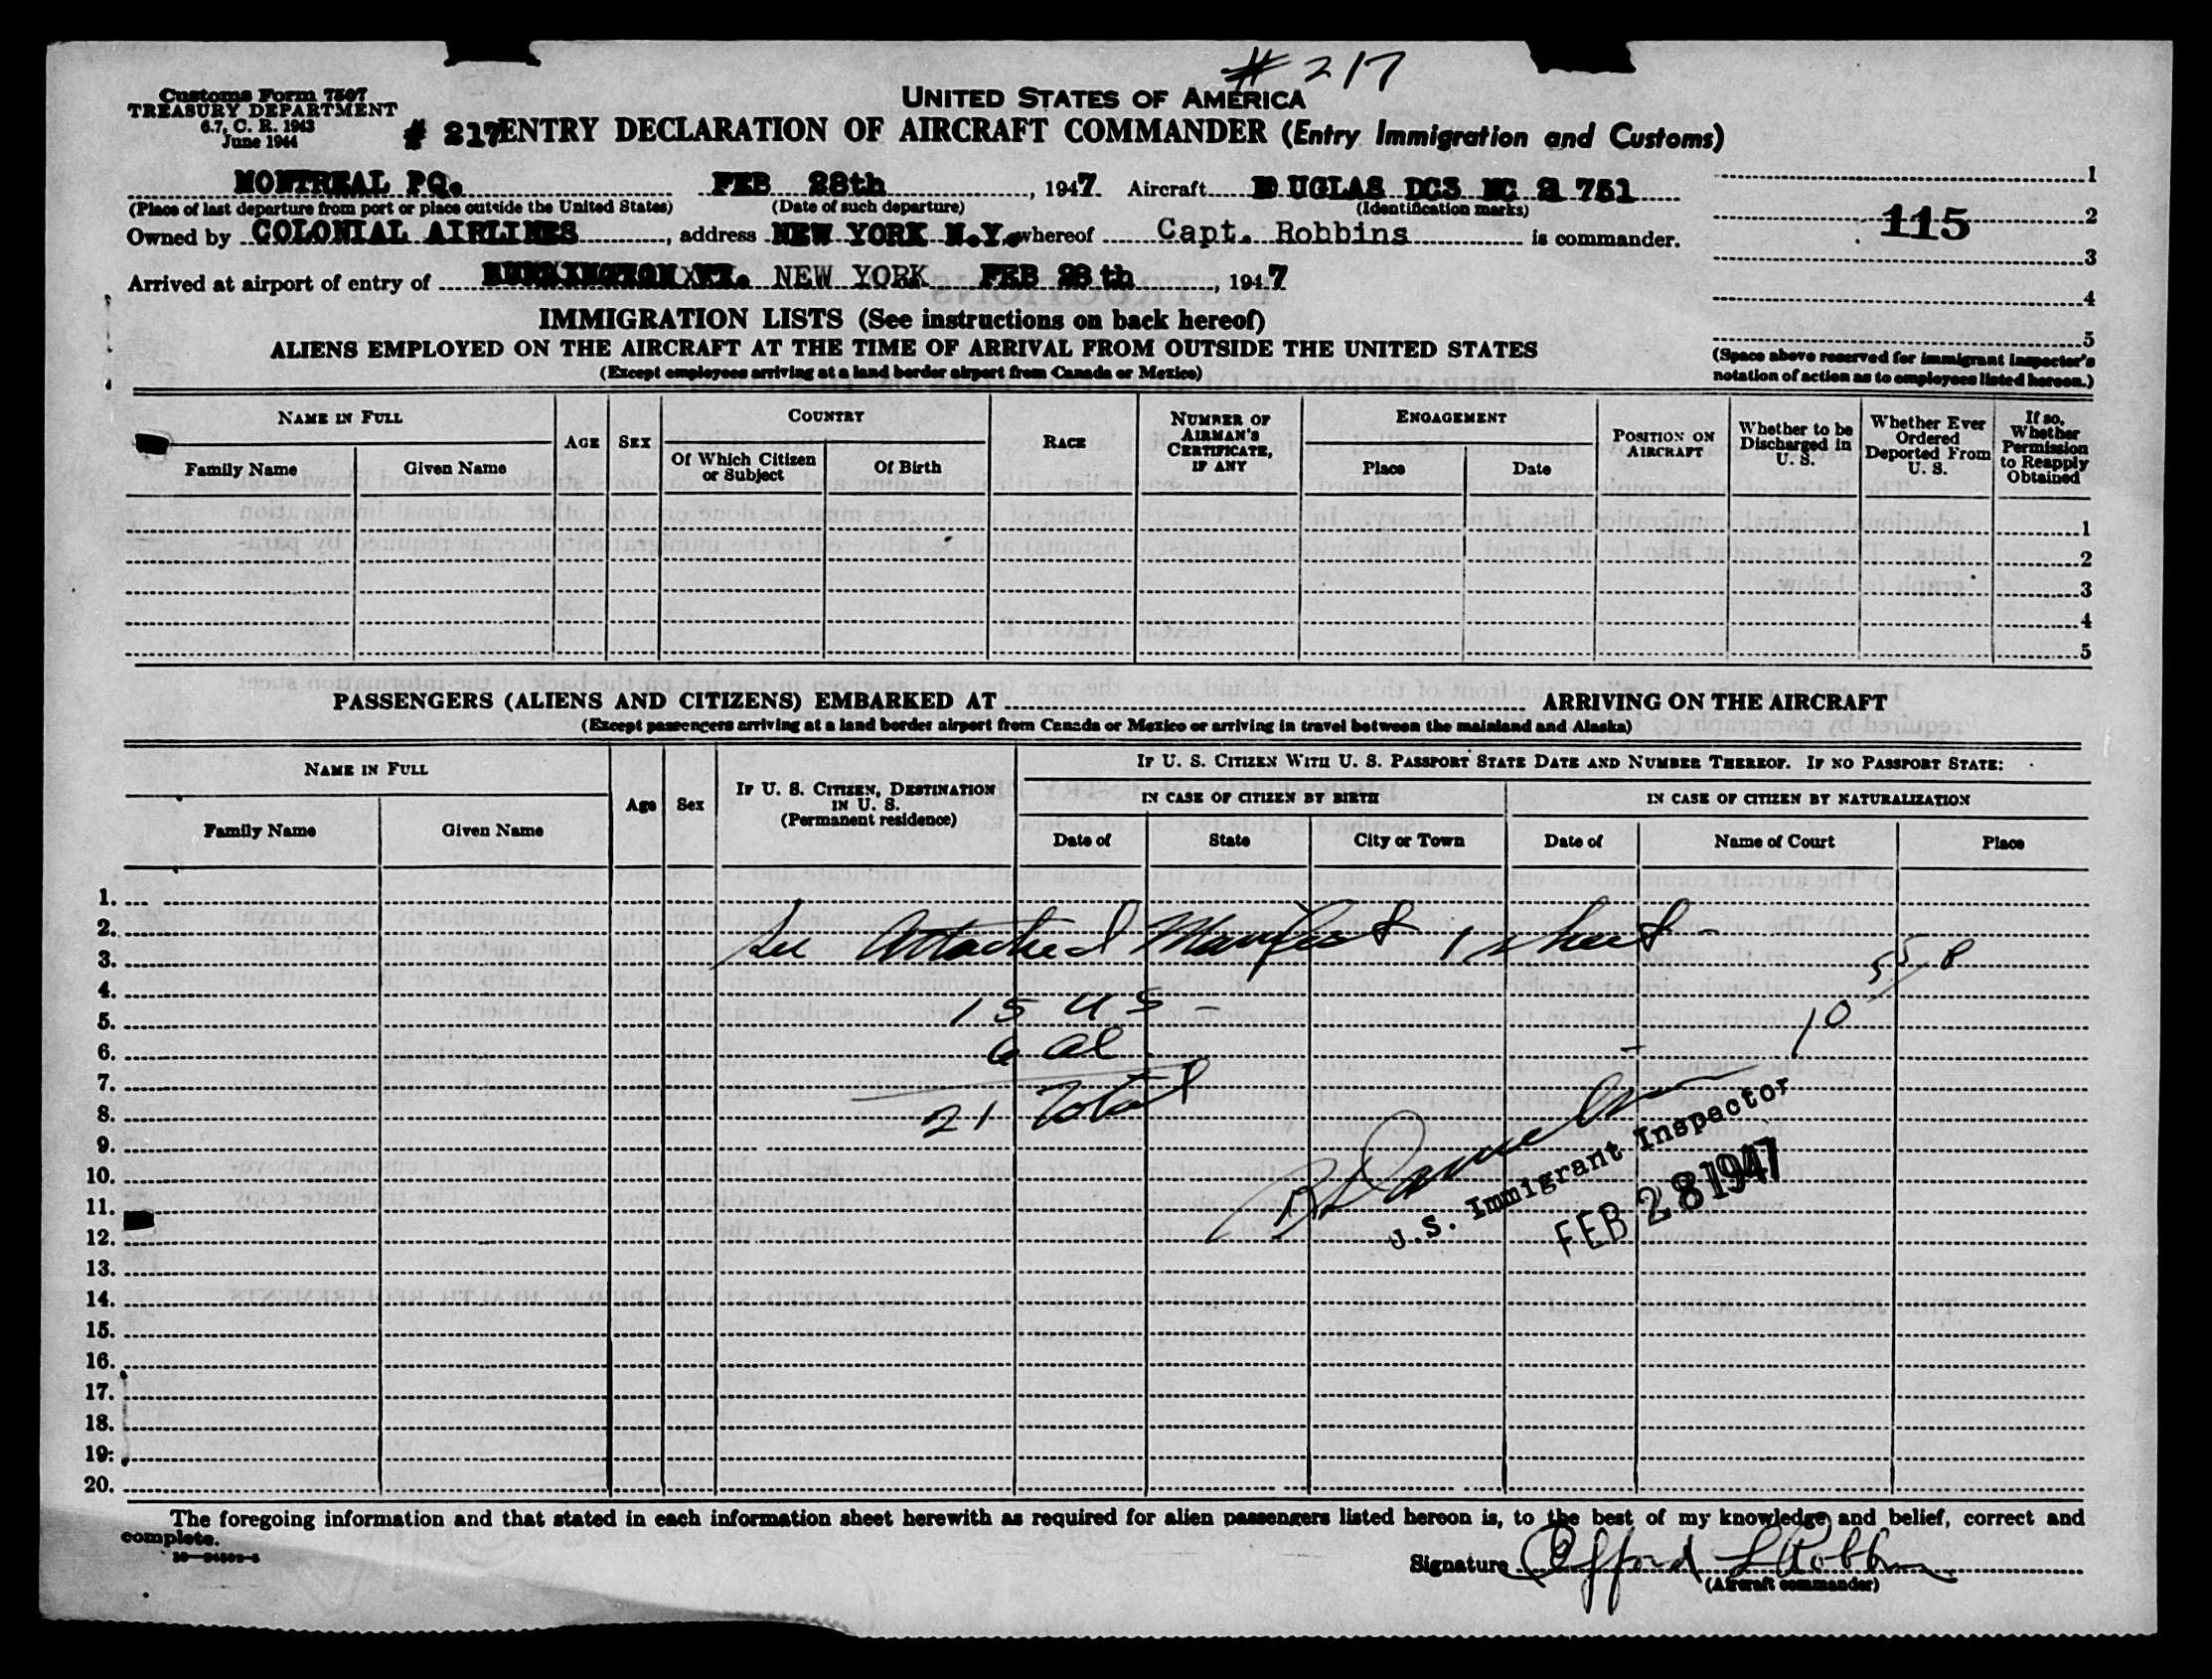 # 217
Customs Form 7507
TREASURY DEPARTMENT
6.7, C. R. 1943
June 1944
UNITED STATES OF AMERICA
# 217 ENTRY DECLARATION OF AIRCRAFT COMMANDER (Entry Immigration and Customs)
MONTREAL PQ. FEB 28th, 1947 Aircraft D UGLAS DC3 NC 21 751
(Place of last departure from port or place outside the United States) (Date of such departure) (Identification marks)
Owned by COLONIAL AIRLINES, address NEW YORK N.Y. whereof Capt. Robbins is commander.
Arrived at airport of entry of NEW YORK FEB 28 th, 1947
1
115 2
3
4
5
(Space above reserved for immigrant inspector's
notation of action as to employees listed hereon.)
IMMIGRATION LISTS (See instructions on back hereof)
ALIENS EMPLOYED ON THE AIRCRAFT AT THE TIME OF ARRIVAL FROM OUTSIDE THE UNITED STATES
(Except employees arriving at a land border airport from Canada or Mexico)
NAME IN FULL
Family Name Given Name
AGE SEX
COUNTRY
Of Which Citizen or Subject Of Birth
RACE
NUMBER OF AIRMAN'S CERTIFICATE, IF ANY
ENGAGEMENT
Place Date
POSITION ON AIRCRAFT
Whether to be Discharged in U. S.
Whether Ever Ordered Deported From U. S.
If so, Whether Permission to Reapply Obtained
1
2
3
4
5
PASSENGERS (ALIENS AND CITIZENS) EMBARKED AT ARRIVING ON THE AIRCRAFT
(Except passengers arriving at a land border airport from Canada or Mexico or arriving in travel between the mainland and Alaska)
NAME IN FULL
Family Name Given Name
Age Sex
IF U. S. CITIZEN, DESTINATION IN U. S.
(Permanent residence)
IF U. S. CITIZEN WITH U. S. PASSPORT STATE DATE AND NUMBER THEREOF. IF NO PASSPORT STATE:
IN CASE OF CITIZEN BY BIRTH IN CASE OF CITIZEN BY NATURALIZATION
Date of State City or Town Date of Name of Court Place
1.
2.
3. See Attached Manifest 1 sheet -
4.
5. 15 US - 10
6. 6 al
7.
8. 21 Total
9.
10.
11.
12.
13.
14.
15.
16.
17.
18.
19.
20.
U.S. Immigrant Inspector
FEB 28 1947
The foregoing information and that stated in each information sheet herewith as required for alien passengers listed hereon is, to the best of my knowledge and belief, correct and
complete.
Signature Clifford L Robbins
(Aircraft commander)